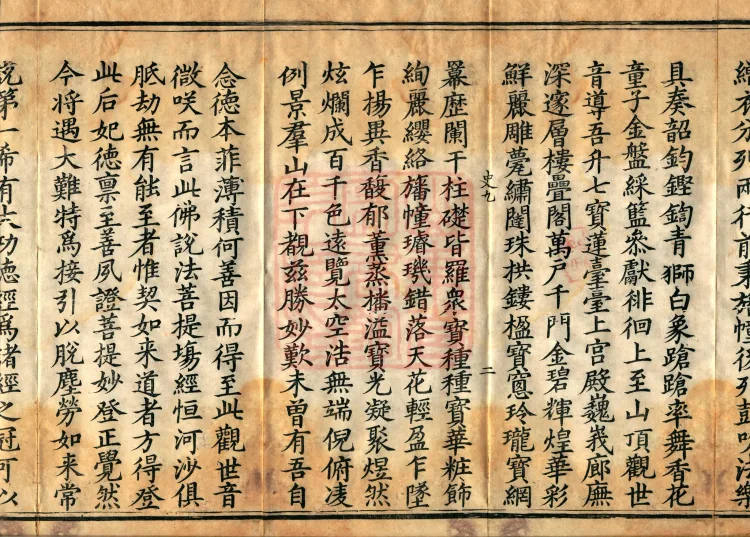 具奏韶鈞鏗鍧青獅白象蹌蹌率舞香花
童子金盤綵籃參獻徘徊上至山頂觀世
音導吾升七寶蓮臺臺上宮殿巍峩廊廡
深邃層樓疊閣萬戶千門金碧輝煌華彩
鮮麗雕甍繡闥珠拱鏤楹寶窻玲瓏寶網
史九
二
羃歷闌干柱礎皆羅衆寶種種寶華粧飾
絢麗纓絡旛幢璿璣錯落天花輕盈乍墜
乍揚異香馥郁薰蒸播溢寶光凝聚煜然
炫爛成百千色遠覽太空浩無端倪俯凌
例景羣山在下覩兹勝妙歎未曽有吾自
念德本菲薄積何善因而得至此觀世音
微咲而言此佛說法菩提塲經恒河沙俱
胝劫無有能至者惟契如来道者方得登
此后妃德禀至善夙證菩提妙登正覺然
今将遇大難特爲接引以脫塵勞如来常
說第一希有大功德經爲諸經之冠可以